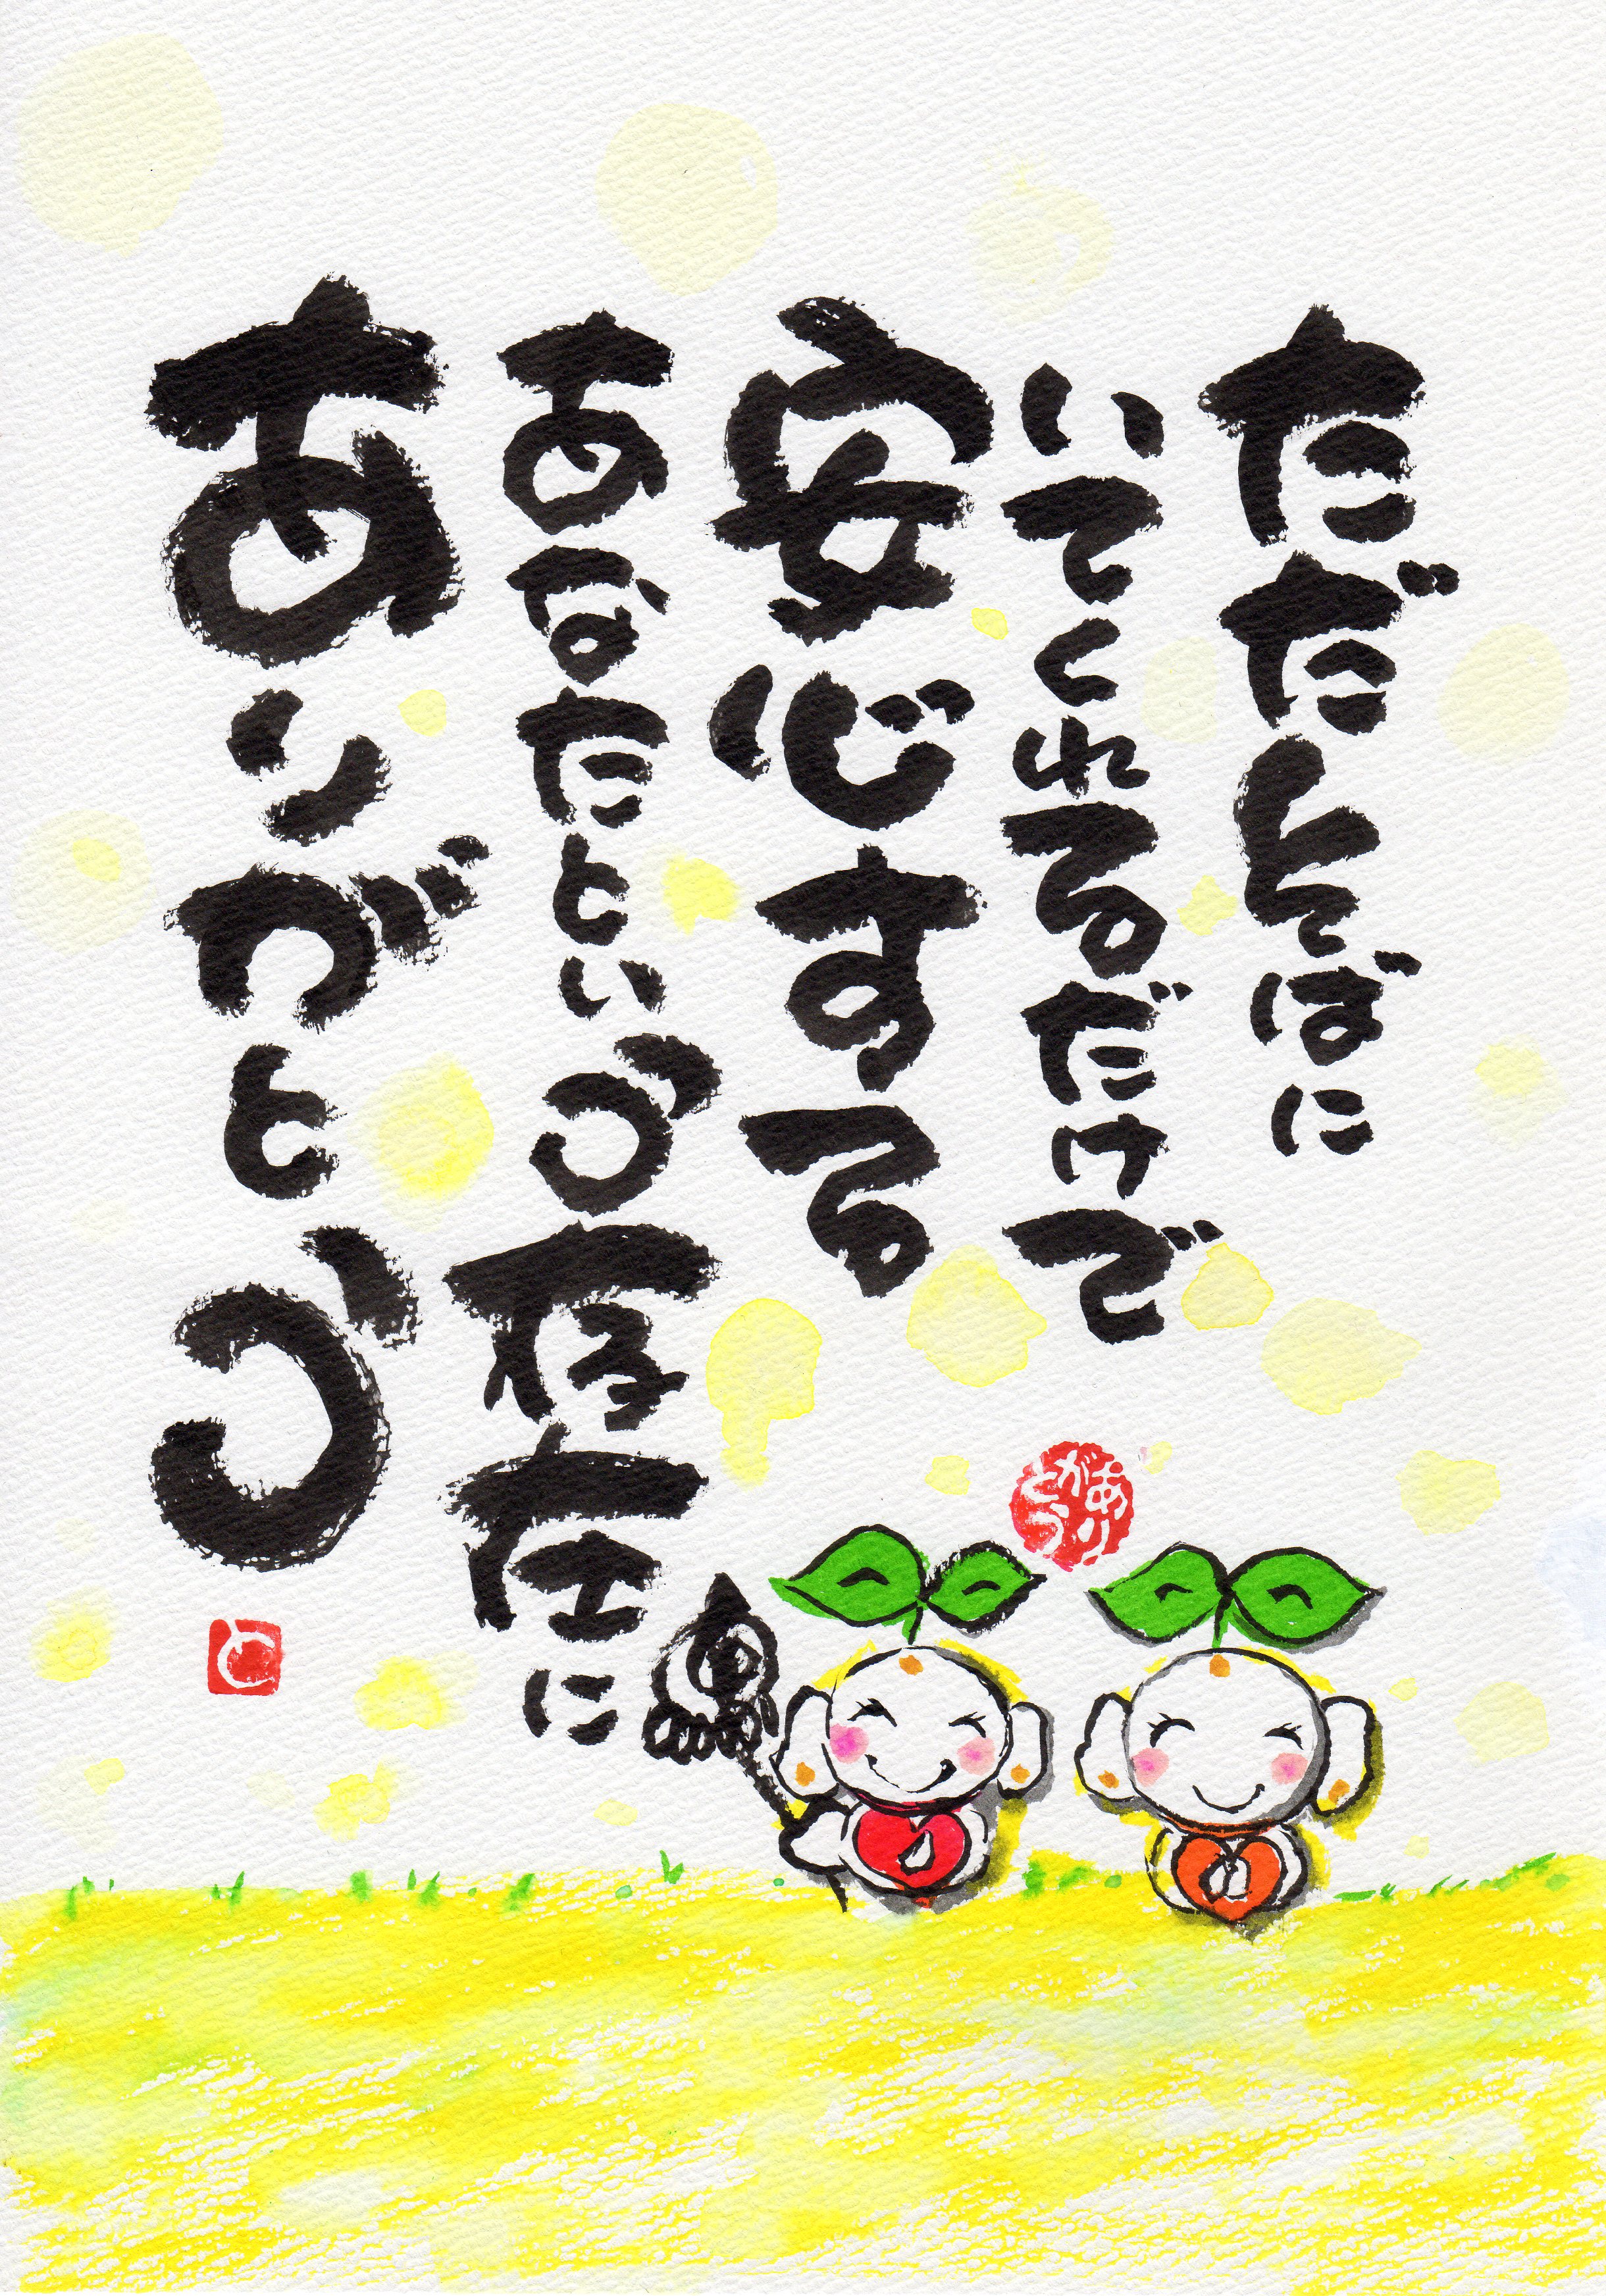 ただそばに
いてくれるだけで
安心する
あなたという存在に
ありがとう
ありがとう